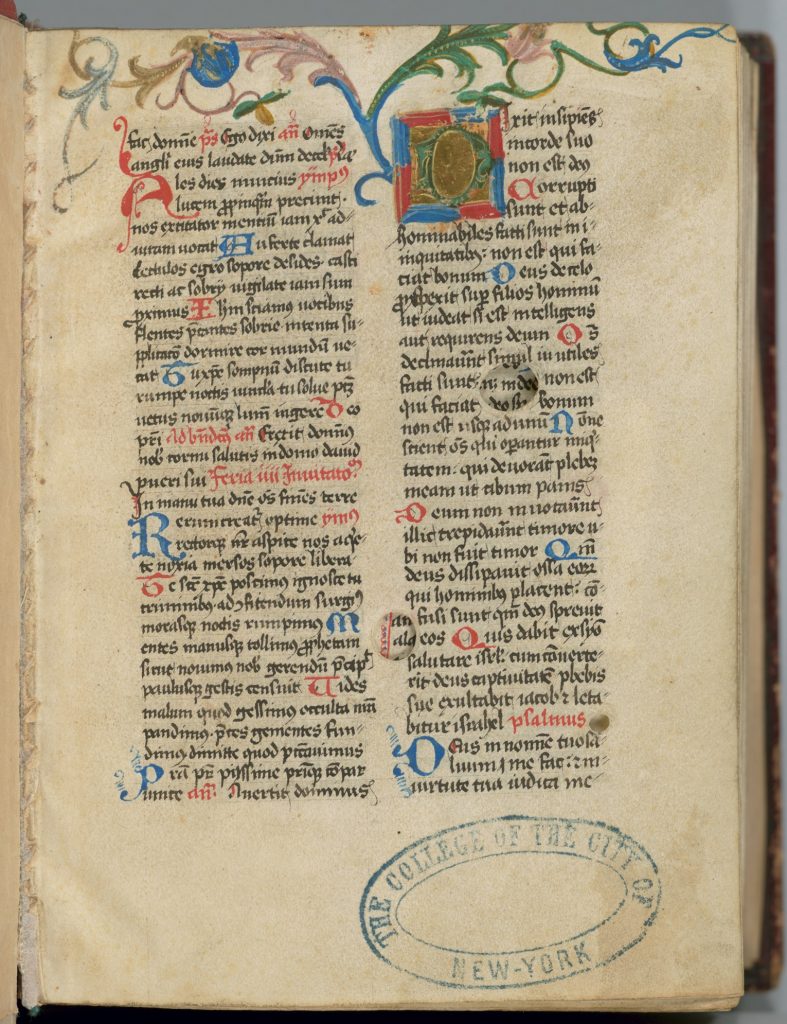 fac domine ps Ego dixi añ Omnes
angli eius laudate dnm de celis
Ales diei nuncius ymnus
lucem propinquam precinit
nos excitator mentium iam xpc ad
uitam uocat Auferte clamat
lectulos egro sopore desides casti
recti ac sobrij uigilate iam sum
proximus Ihm sciamus uocibus
flentes precantes sobrie intenta su
plicatio dormire cor mundum ue
tat Tu xpe sompnum discute tu
rumpe noctis uincla tu solue pctm
uetus nouumque lumen ingere Deo
pri Ad bndcus añ Erexit dominus
nob cornu salutis in domo dauid
pueri sui Feria iiii Inuitato
In manu tua dne oms fines terre
Rerum creator optime ymnus
rectorque nr aspice nos a quie
te noxia mersos sopore libera
Te sce xpe poscimus ignosce tu
criminibus ad confitendum surgimus
morasque noctis rumpimus M
entes manusque tollimus prophetam
sicut nouimus nob gerendum precepit
paulusque gestis censuit Uides
malum quod gessimus occulta nostra
pandimus preces gementes fun
dimus dimitte quod peccauimus
Pra pr piissime prique compar
unice añ Auertit dominus
Dixit insipiens
in corde suo
non est deus
Corrupti
sunt et ab
hominabiles facti sunt in i
niquitatibus non est qui fa
ciat bonum Deus de celo
prospexit super filios hominum
ut uideat si est intelligens
aut requirens deum Oms
declinauerunt simul inutiles
facti sunt non est
qui faciat bonum
non est usque ad unum Nonne
scient oms qui operantur iniqui
tatem qui deuorant plebem
meam ut cibum panis
Deum non inuocauerunt
illic trepidauerunt timore u
bi non fuit timor Qm
deus dissipauit ossa eorum
qui hominibus placent con
fusi sunt qm deus spreuit
eos Quis dabit ex syon
salutare isrl cum conuerte
rit deus captiuitatem plebis
sue exultabit iacob et leta
bitur israhel psalmus
Deus in nomine tuo sal
uum me fac et in
uirtute tua iudica me
THE COLLEGE OF THE CITY OF
NEW-YORK